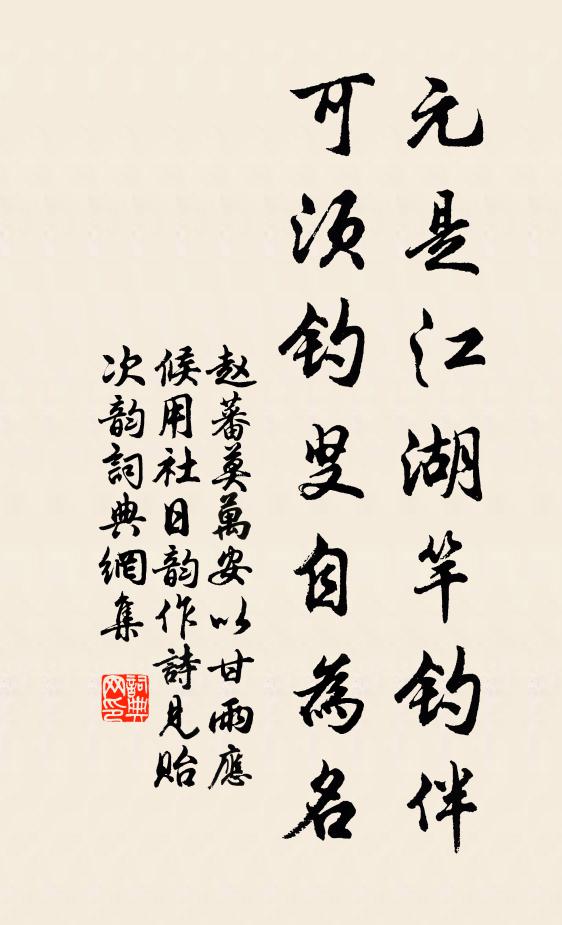 元是江湖竿钓伴
可须钓叟自為名
赵蕃莫萬安以甘雨應
候用社日韵作詩見貽
次韵詞典網集
詞典網印